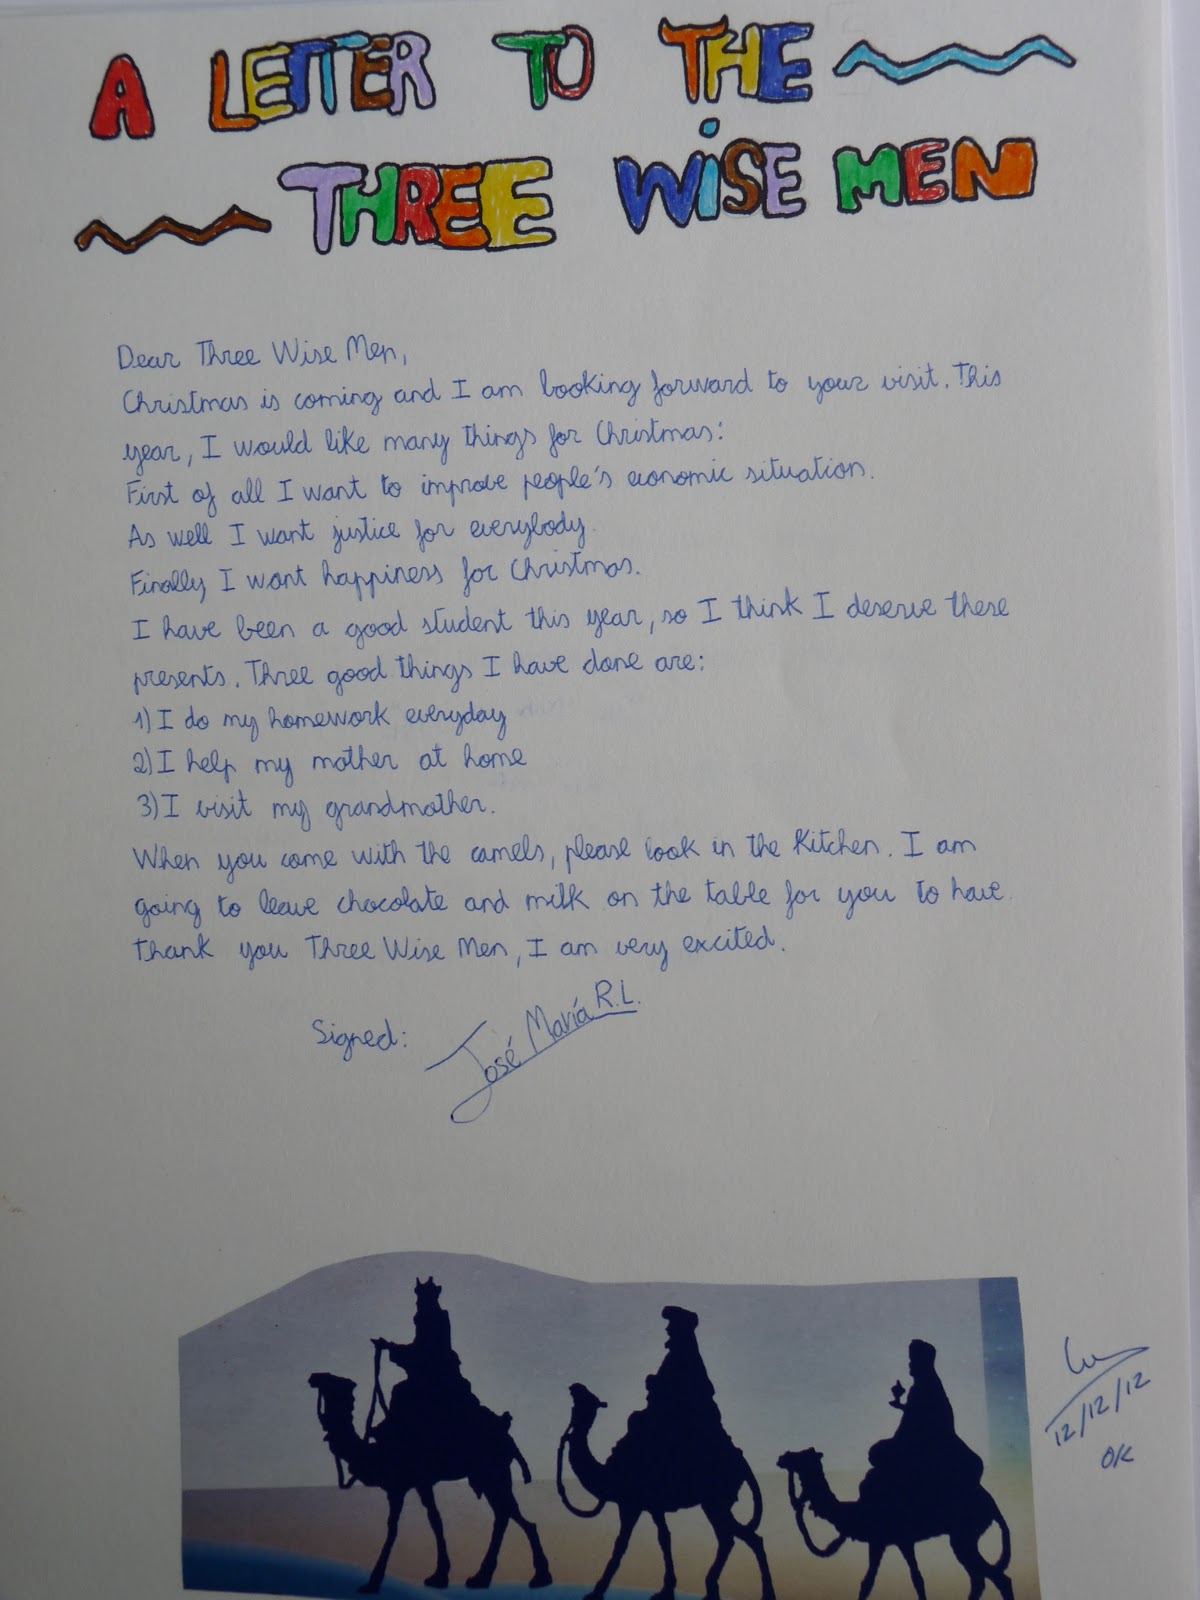 A LETTER TO THE
THREE WISE MEN
Dear Three Wise Men,
Christmas is coming and I am looking forward to your visit. This
year, I would like many things for Christmas:
First of all I want to improve people's economic situation.
As well I want justice for everybody.
Finally, I want happiness for Christmas.
I have been a good student this year, so I think I deserve these
presents. Three good things I have done are:
1) I do my homework everyday
2) I help my mother at home
3) I visit my grandmother.
When you come with the camels, please look in the kitchen. I am
going to leave chocolate and milk on the table for you to have.
Thank you Three Wise Men, I am very excited.
Signed: José María R.L.
12/12/12
OK